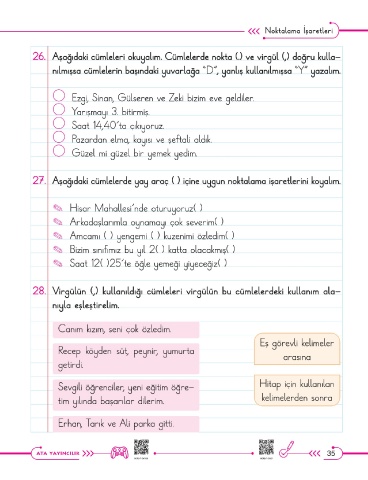 Noktalama İşaretleri
26. Aşağıdaki cümleleri okuyalım. Cümlelerde nokta (.) ve virgül (,) doğru kulla-
nılmışsa cümlelerin başındaki yuvarlağa "D", yanlış kullanılmışsa "Y" yazalım.
Ezgi, Sinan, Gülseren ve Zeki bizim eve geldiler.
Yarışmayı 3. bitirmiş.
Saat 14,40'ta çıkıyoruz.
Pazardan elma, kayısı ve şeftali aldık.
Güzel mi güzel bir yemek yedim.
27. Aşağıdaki cümlelerde yay ayraç ( ) içine uygun noktalama işaretlerini koyalım.
Hisar Mahallesi'nde oturuyoruz( )
Arkadaşlarımla oynamayı çok severim( )
Amcamı ( ) yengemi ( ) kuzenimi özledim( )
Bizim sınıfımız bu yıl 2( ) katta olacakmış( )
Saat 12( )25'te öğle yemeği yiyeceğiz( )
28. Virgülün (,) kullanıldığı cümleleri virgülün bu cümlelerdeki kullanım ala-
nıyla eşleştirelim.
Canım kızım, seni çok özledim.
Recep köyden süt, peynir, yumurta
getirdi.
Sevgili öğrenciler, yeni eğitim öğre-
tim yılında başarılar dilerim.
Erhan, Tarık ve Ali parka gitti.
Eş görevli kelimeler
arasına
Hitap için kullanılan
kelimelerden sonra
ATA YAYINCILIK
35